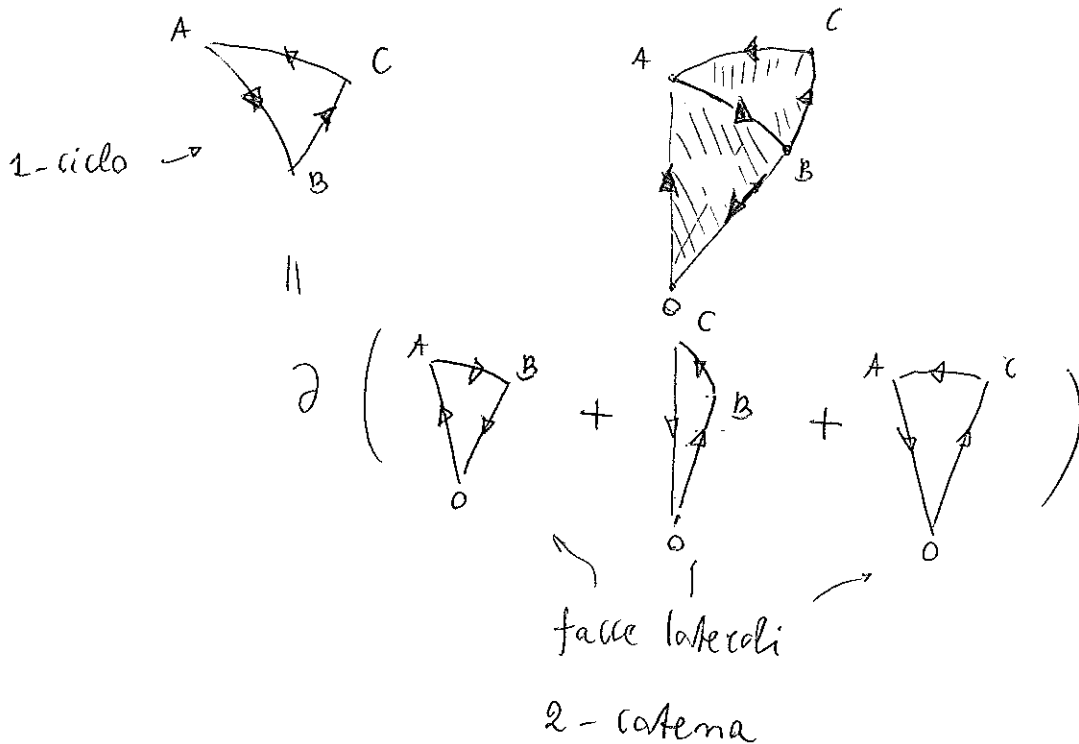 A C
B
1-ciclo →
A C
B
O
||
∂ ( A B O + C B O + A C O )
facce laterali
2-catena